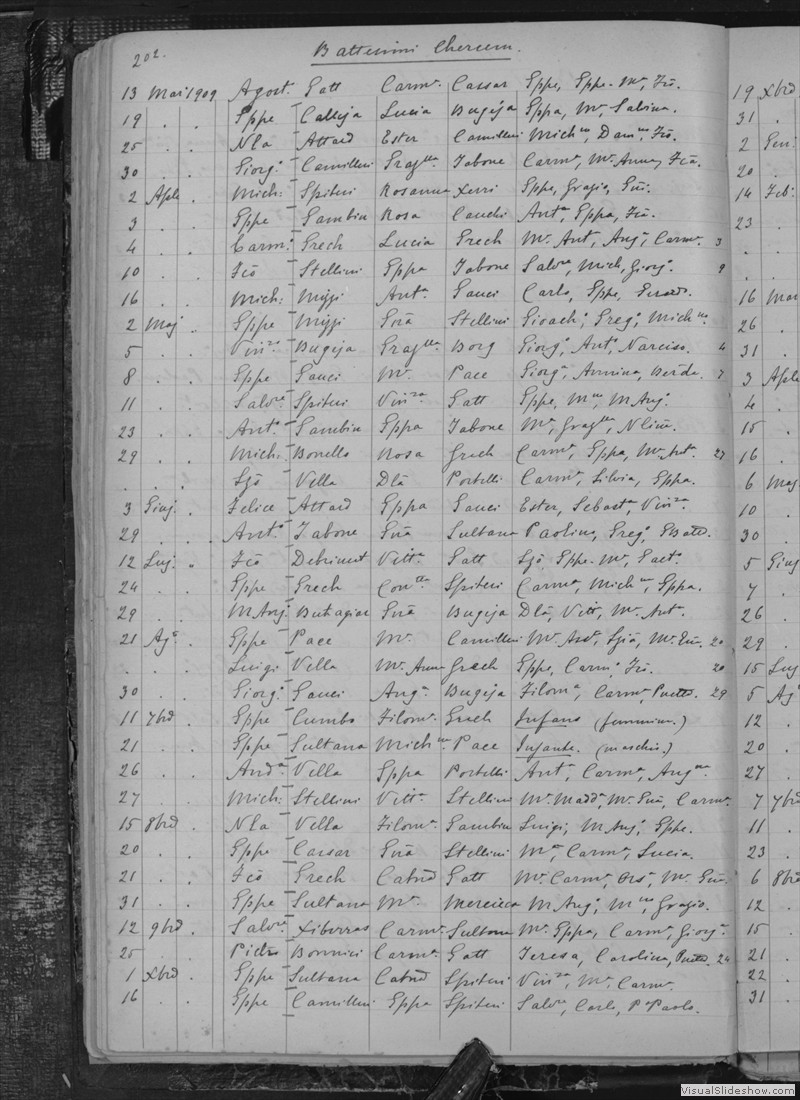 202.
Battesimi Chercem.
13 Mar 1909 Agost. Gatt Carm.a Cassar Gppe, Gppe-M.a, Fcõ.
19 . . Gppe Calleja Lucia Bugeja Gppa, M.a, Sabina.
25 . . Nla Attard Ester Camilleri Mich.na, Dam.na, Fcõ.
30 . . Giorg.o Camilleri Graz.lla Tabone Carm.a, M.a Anna, Fcã.
2 Aple . Mich. Spiteri Rosanna Xerri Gppe, Grazia, Em.
3 . . Gppe Gambin Rosa Cauchi Ant.a, Gppa, Fcõ.
4 . . Carm.o Grech Lucia Grech M.a Ant, Ang.o, Carm.a 3
10 . . Fcõ Stellini Gppa Tabone Salv.re, Mich, Giorg.o 9
16 . . Mich: Mizzi Ant.a Gauci Carlo, Gppe,
2 Maj . Gppe Mizzi Stellini Gioach.o, Greg.o, Mich.na
5 . . Vin.zo Bugeja Graz.lla Borg Giorg.o, Ant.o, Narciso. 4
8 . . Gppe Gauci M.a Pace Giorg.o, Bẽrda. 7
11 . . Salv.re Spiteri Vin.za Gatt Gppe, M.na, M Ang.a
23 . . Ant.o Gambin Gppa Tabone M.a, Graz.lla, Nlina.
29 . . Mich: Bonello Rosa Grech Carm.a, Gppa, M.a Ant.a 27
. . . Vella Portelli Carm.a, Silvia, Gppa.
3 Giuj . Felice Attard Gppa Gauci Ester, Sebast.a, Vin.za
29 . . Ant.o Tabone Sultana Paolina, Greg.o,
12 Luj . Fcõ Debrincat Vitt.a Gatt Gppe-M.a, Gaet.o
24 . . Gppe Grech Con.tta Spiteri Carm.a, Mich.na, Gppa.
29 . . M Ang: Butigieg Bugeja Vitt, M.a Ant.
21 Ag.o . Gppe Pace M.a Camilleri 20
. . . Luigi Vella M.a Anna Grech Gppe, Carm.o, Fcõ. 20
30 . . Giorg.o Gauci Ang.a Bugeja Filom.a, Carm.a, 29
11 7bre . Gppe Cumbo Filom.a Grech Infans (femmina.)
21 . . Gppe Sultana Mich.na Pace Infante. (maschio.)
26 . . And.a Vella Gppa Portelli Ant.a, Carm.a, Ang.na
27 . . Mich: Stellini Vitt.a Stellini M.a Madd.a, Carm.a
15 8bre . Nla Vella Filom.a Gambin Luigi, M Ang.o, Gppe.
20 . . Gppe Cassar Stellini M.a, Carm.a, Lucia.
21 . . Fcõ Grech Gatt M.a Carm.a, Ors.a,
31 . . Gppe Sultana M.a Mercieca M Ang.o, M.na, Grazio.
12 9bre . Salv.re Xiberras Carm.a Sultana M.a Gppa, Carm.a, Giorg.a
25 . Pietro Bonnici Carm.a Gatt Teresa, Carolina, 24
1 Xbre . Gppe Sultana Spiteri Vin.za, M.a Carm.a
16 . . Gppe Camilleri Gppa Spiteri Salv.re, Carlo, P.o Paolo.
19 Xbre
31 .
2 Gen:
20 .
14 Feb:
23 .
16 Mar
26 .
31 .
3 Aple
4 .
15 .
16 .
6 Maj
10 .
30 .
5 Giuj
7 .
26 .
29 .
15 Luj
5 Ag.o
12 .
20 .
27 .
7 7bre
11 .
23 .
6 8bre
12 .
15 .
21 .
22 .
31 .
VisualSlideshow.com